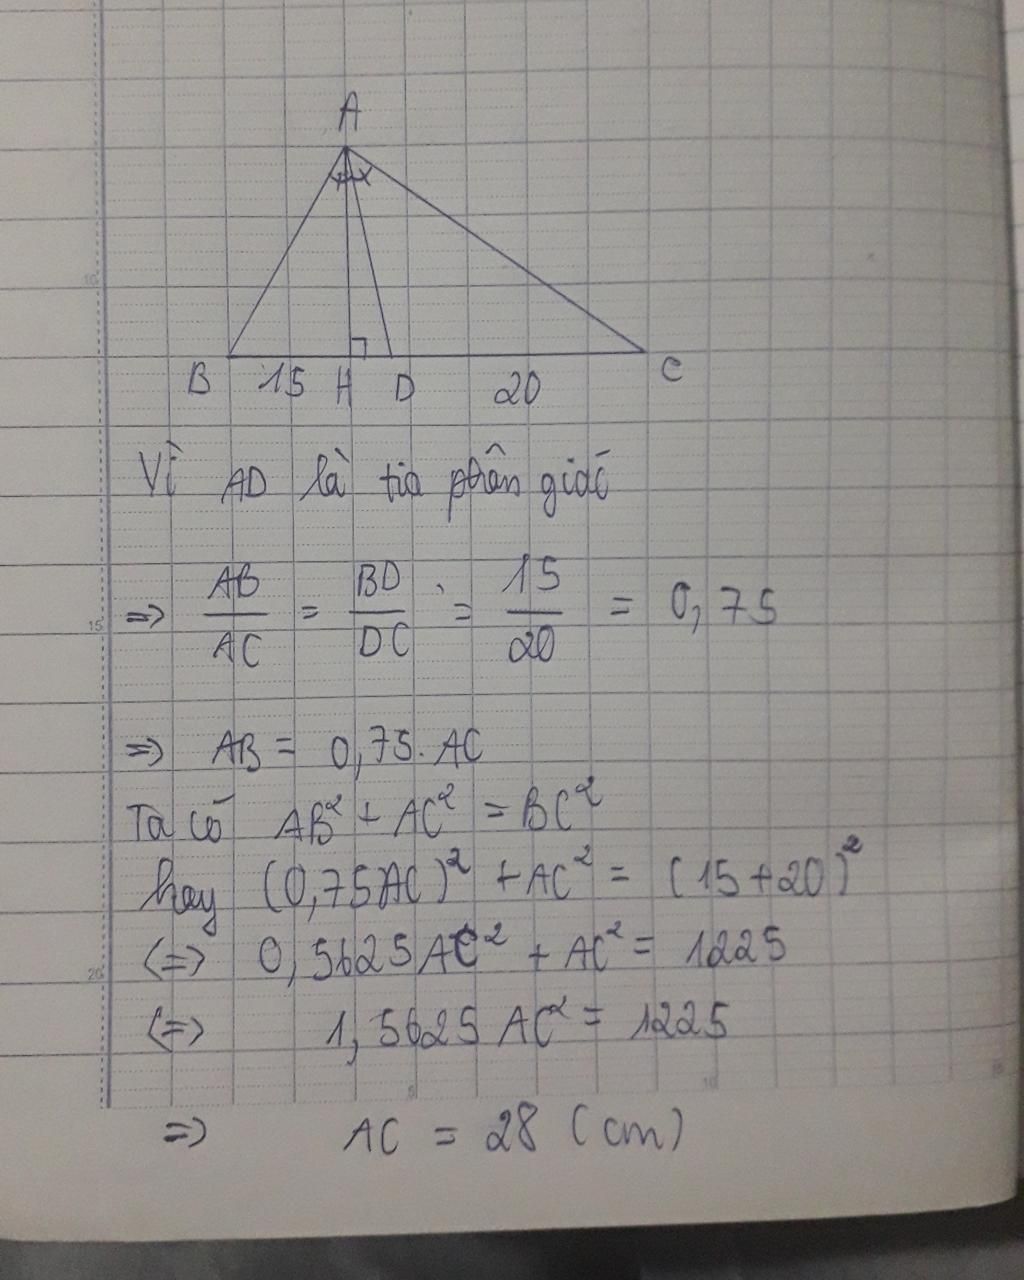 A
B 15 H D 20 C
Vì AD là tia phân giác
=> AB/AC = BD/DC = 15/20 = 0,75
=> AB = 0,75. AC
Ta có AB² + AC² = BC²
hay (0,75AC)² + AC² = (15+20)²
<=> 0,5625AC² + AC² = 1225
<=> 1,5625 AC² = 1225
=> AC = 28 (cm)